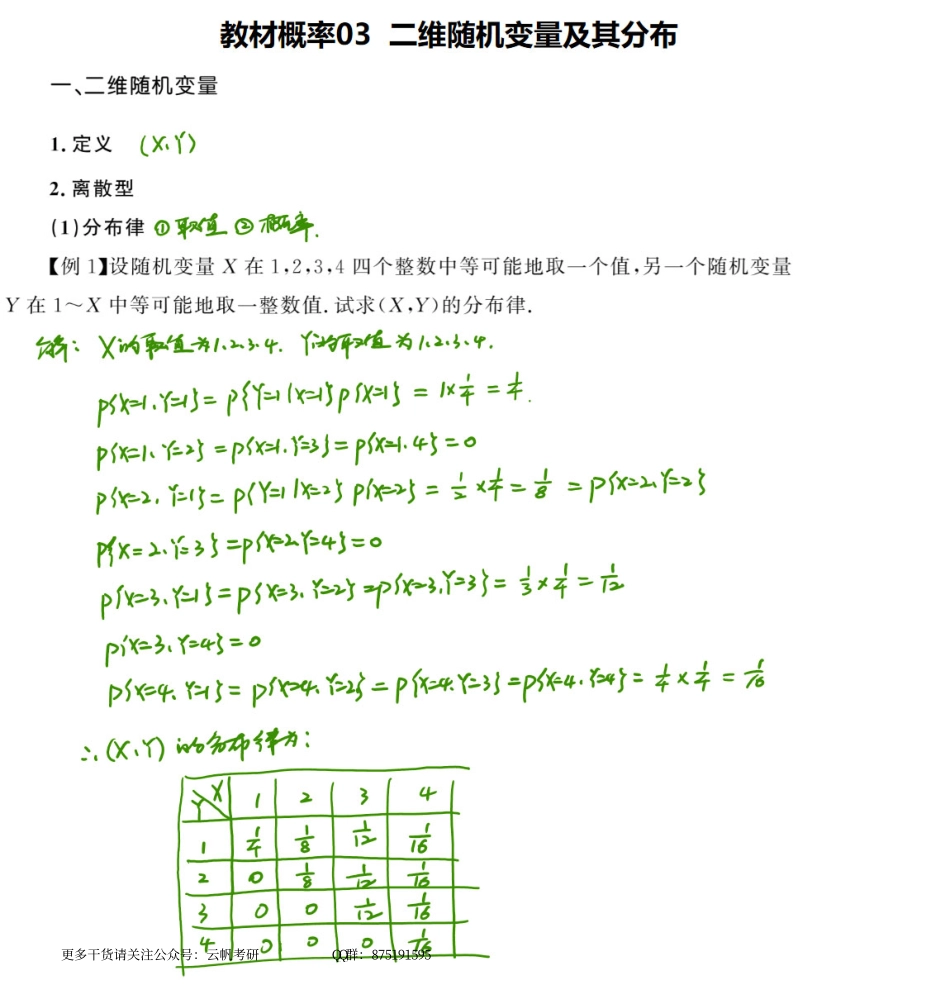 教材概率03 二维随机变量及其分布
一、二维随机变量
1. 定义 (X、Y)
2. 离散型
(1)分布律 ①取值 ②概率.
【例1】设随机变量 X 在 1,2,3,4 四个整数中等可能地取一个值,另一个随机变量
Y 在 1～X 中等可能地取一整数值. 试求(X,Y)的分布律.
解: X的取值为1、2、3、4. Y的取值为1、2、3、4.
P{X=1、Y=1}=P{Y=1|X=1}P{X=1} = 1×1/4 = 1/4.
P{X=1、Y=2}=P{X=1、Y=3}=P{X=1、4}=0
P{X=2、Y=1}=P{Y=1|X=2}P{X=2} = 1/2×1/4 = 1/8 =P{X=2、Y=2}
P{X=2、Y=3}=P{X=2、Y=4}=0
P{X=3、Y=1}=P{X=3、Y=2}=P{X=3、Y=3}= 1/3×1/4 = 1/12
P{X=3、Y=4}=0
P{X=4、Y=1}=P{X=4、Y=2}=P{X=4、Y=3}=P{X=4、Y=4}= 1/4×1/4 = 1/16
∴(X、Y)的分布律为:
Y X 1 2 3 4
1 1/4 1/8 1/12 1/16
2 0 1/8 1/12 1/16
3 0 0 1/12 1/16
4 0 0 0 1/16
更多干货请关注公众号：云帆考研 QQ群：875191595